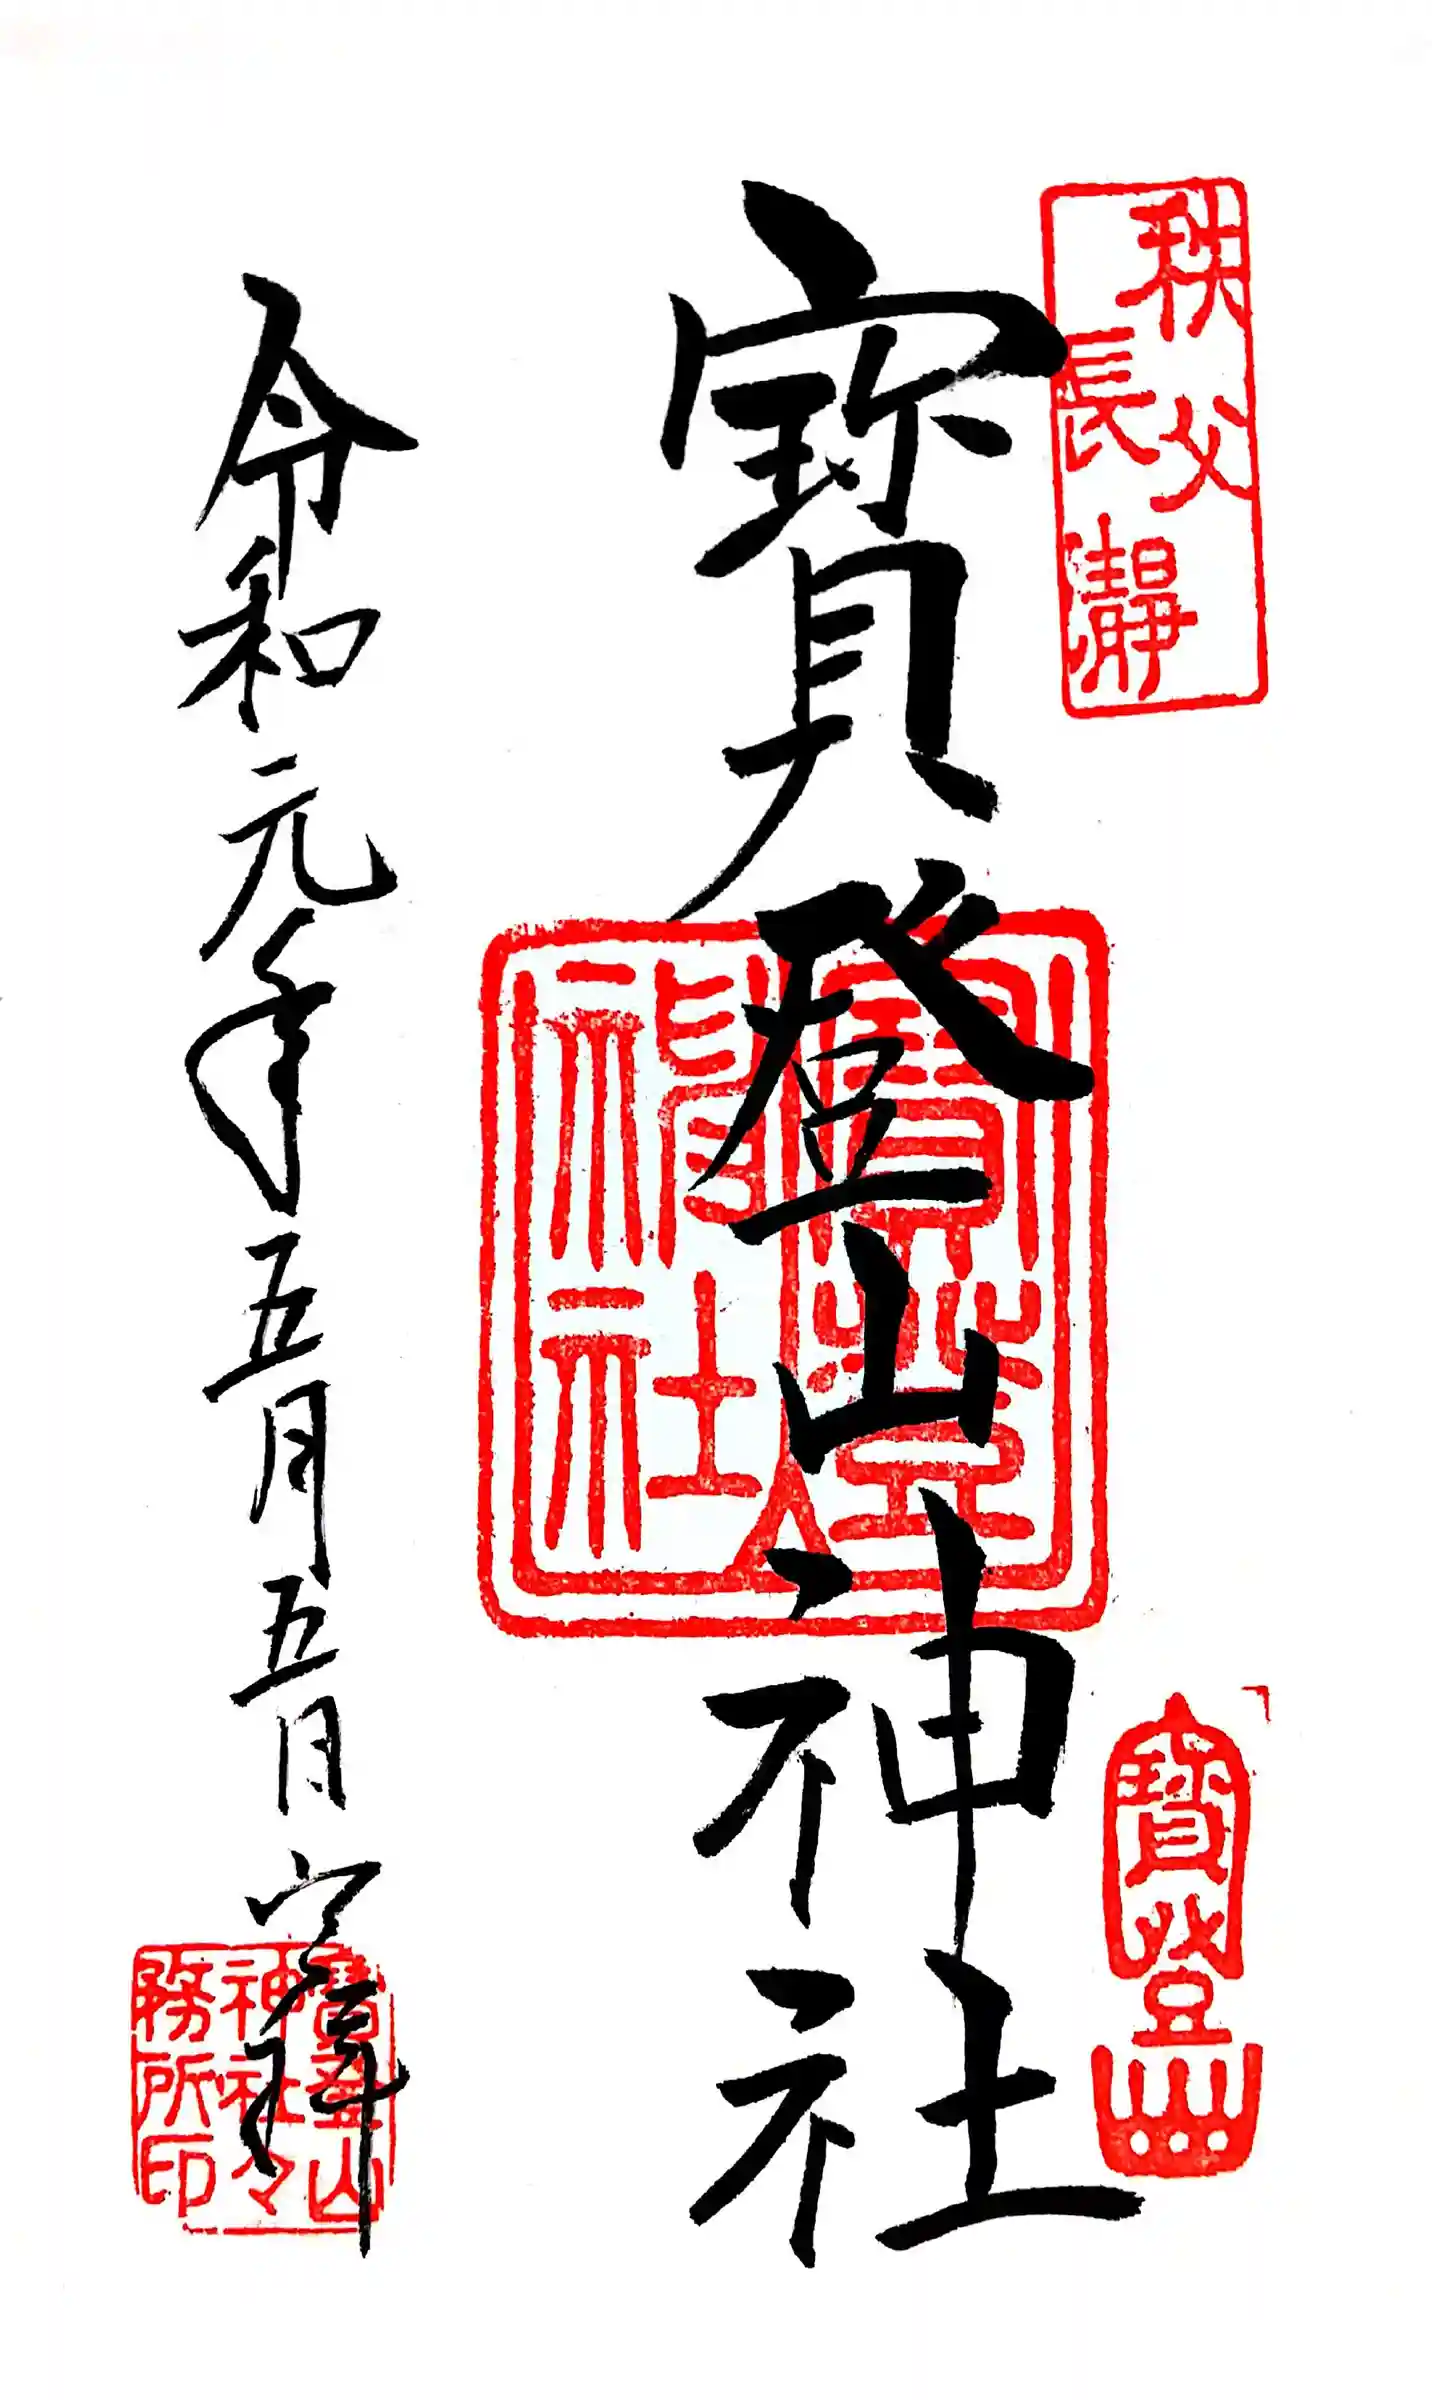 秩父
長瀞
寶登山
寶登山神社
寶登山
神社
令和元年五月五日 宮拜
寶登山
神社々
務所印